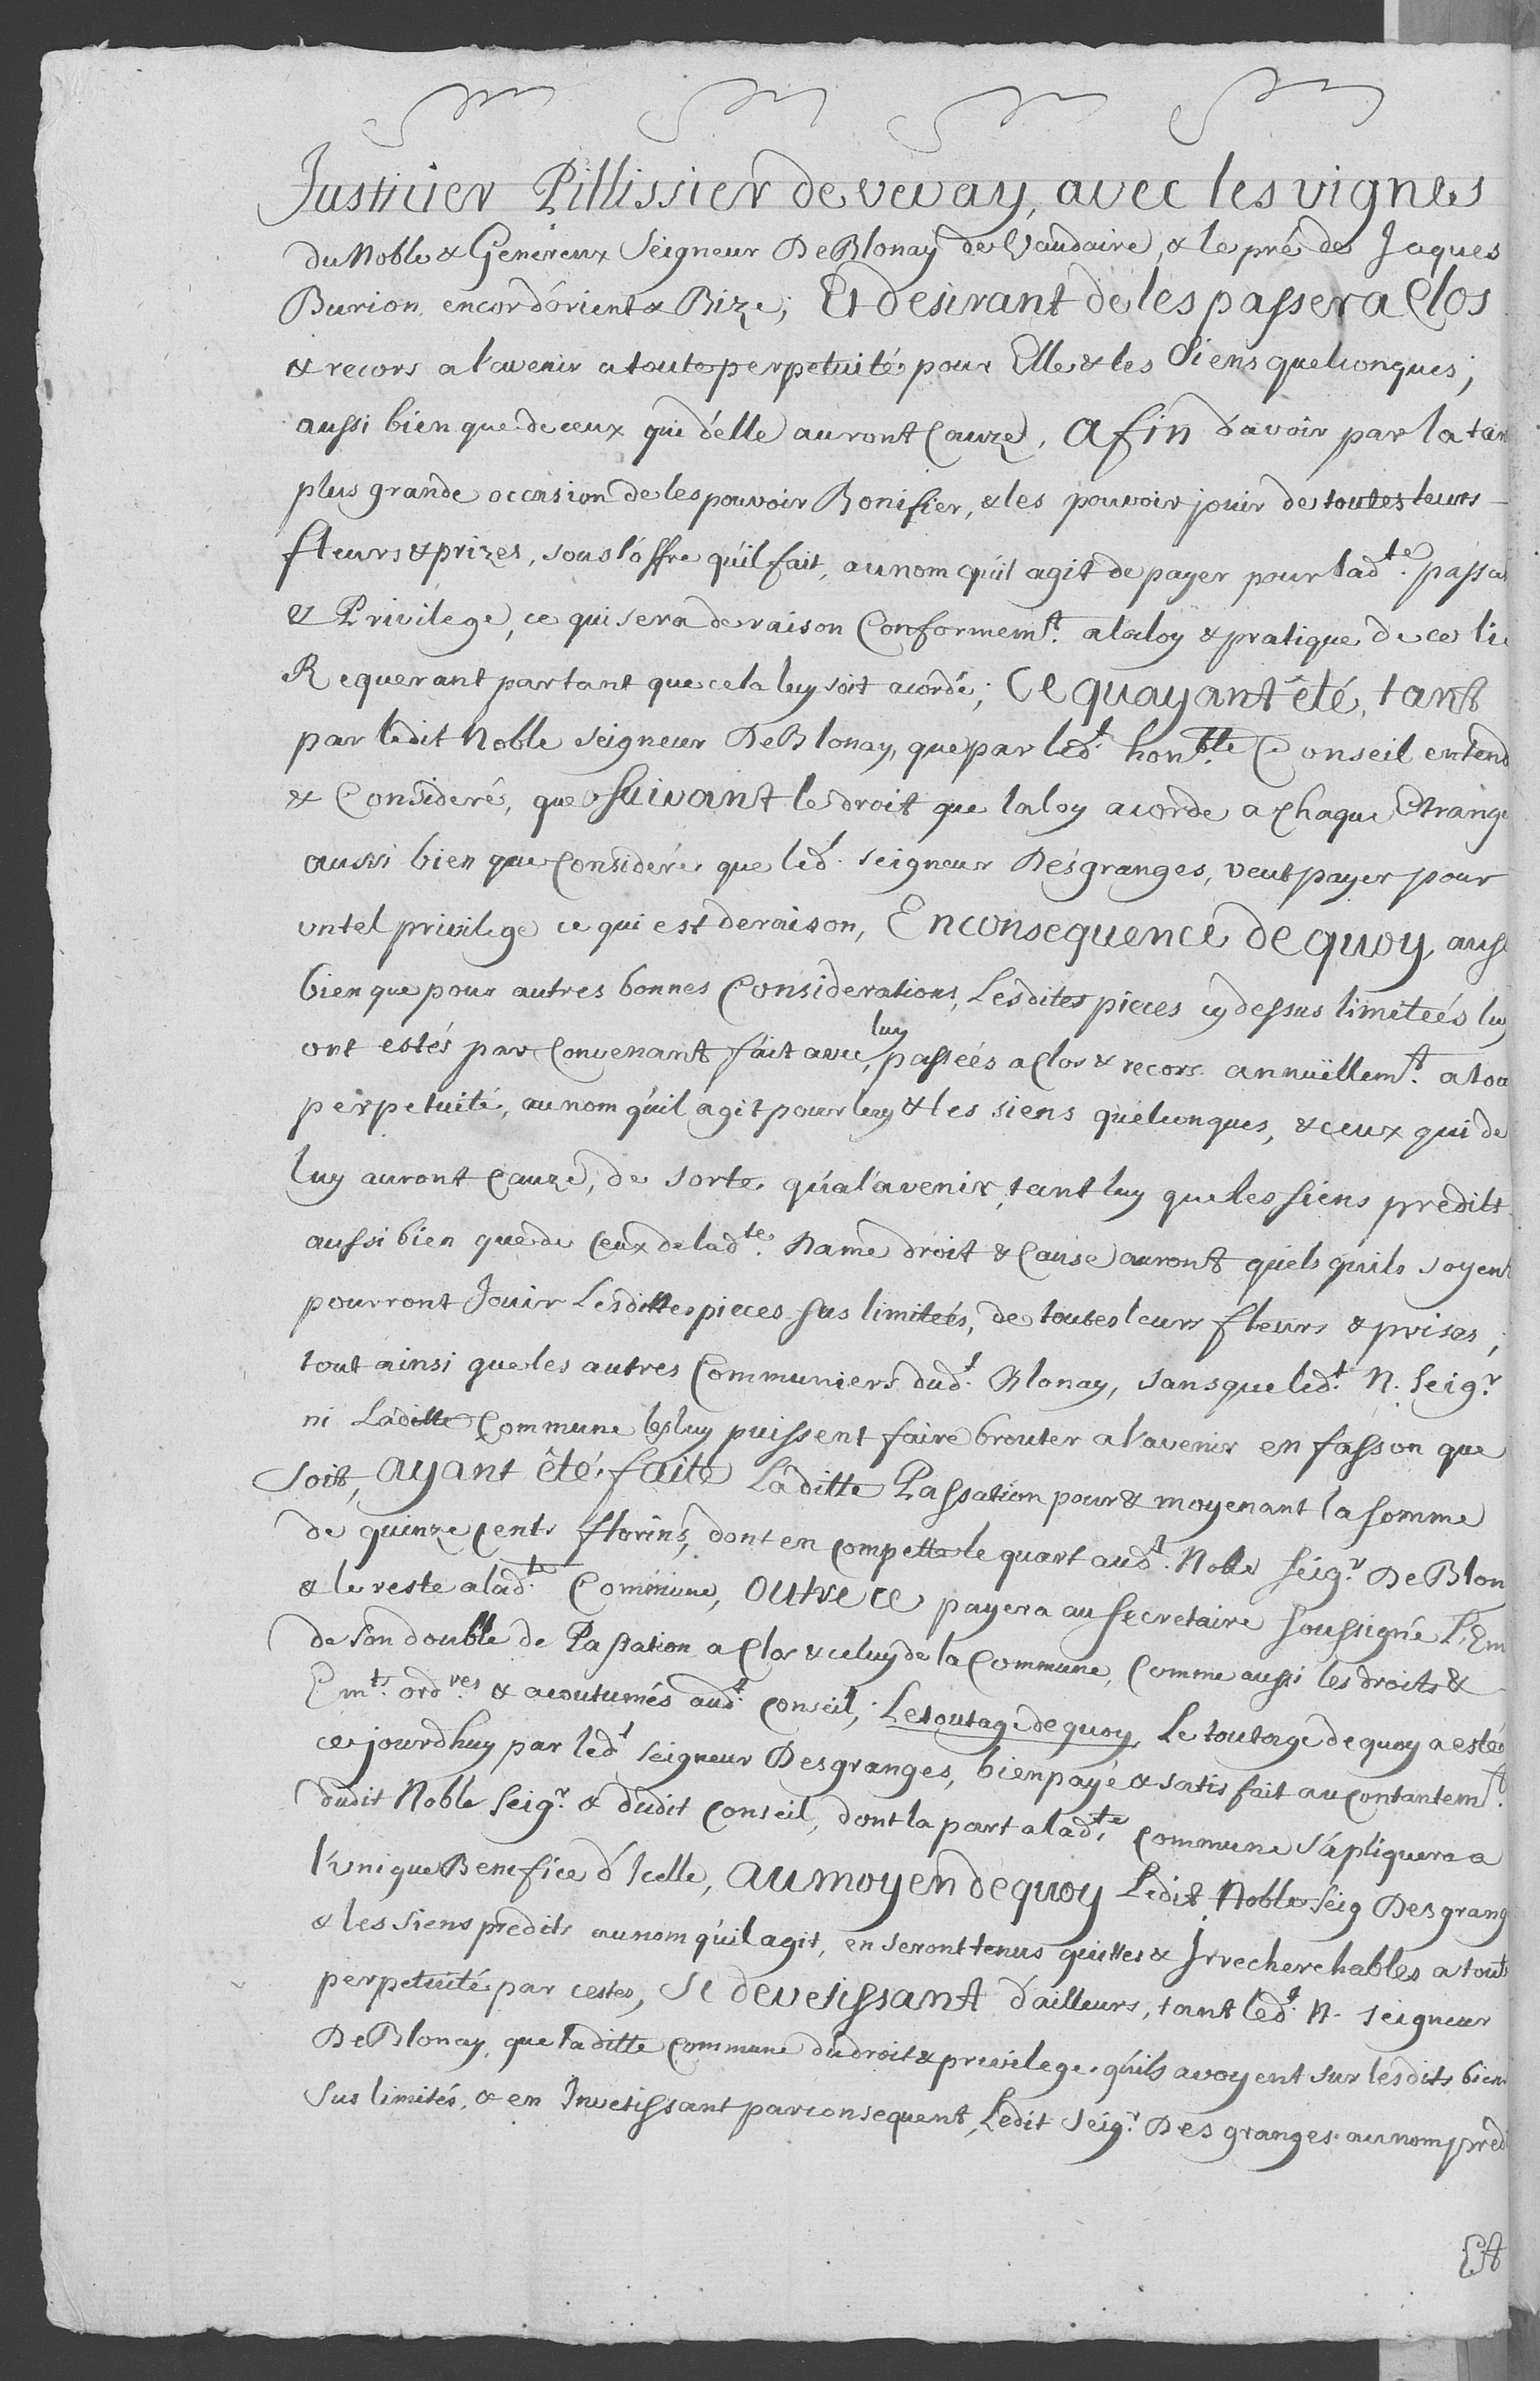 Justicier Pillissier de vevay, avec les vignes
du Noble & Genereux Seigneur DeBlonay de Vaudaire, & le pré de Jaques
Burion encor d'orient & Bize; Et desirant de les passer a Clos
& recors a l'avenir a toute perpetuité pour Elle & les Siens quelconques;
aussi bien que de ceux qui d'elle auront Cauze, afin d'avoir par la tan
plus grande occasion de les pouvoir Bonifier, & les pouvoir jouir de toutes leurs
fleurs & prizes, sous l'offre qu'il fait, au nom qu'il agit de payer pour lad.te passa
& Privilege, ce qui sera de raison Conformem.t a la loy & pratique de ce lie
Requerant partant que cela luy soit acordé; Ce qu'ayant été, tant
par ledit Noble Seigneur DeBlonay, que par led.t hon.ble Conseil entend
& Consideré, que suivant le droit que la loy acorde a Chaque Etrange
aussi bien que Consideré que led.t Seigneur Desgranges, veut payer pour
un tel privilege ce qui est de raison, En consequence de quoy, auss
bien que pour autres bonnes Considerations, Lesdites pieces cy dessus limiteés luy
ont estés par Convenant fait avec luy, passeés a Clos & recors annuëllem.t a tou
perpetuité, au nom qu'il agit pour luy & les siens quelconques, & ceux qui de
luy auront Cauze, de sorte qu'a l'avenir, tant luy que les siens predits
aussi bien que de Ceux de lad.te Dame droit & Cause auront quels qu'ils soyent
pourront Jouir Lesdittes pieces sus limiteés, de toutes leurs fleurs & prises,
tout ainsi que les autres Communiers dud.t Blonay, sans que led.t N. Seig.r
ni Laditte Commune les luy puissent faire brouter a l'avenir en fasson que
Soit, ayant été faite Laditte Passation pour & moyenant la somme
de quinze cents florins, dont en compette le quart aud.t Noble Seig.r DeBlon
& le reste a lad.te Commune, Outre ce payera au Secretaire Soussigné L'Em
de son double de Passation a Clos & celuy de la Commune, Comme aussi les droits &
Em.ts ord.res & acoutumés aud.t Conseil, Le toutage de quoy, Le toutage de quoy a esté
cejourdhuy par led.t Seigneur Desgranges, bien payé & satisfait au Contantem.t
dudit Noble Seig.r & dudit Conseil, dont la part a lad.te Commune s'apliquera a
l'unique Benefice d'Icelle, au moyen de quoy Ledit Noble Seig Desgrang
& les Siens predits au nom qu'il agit, en seront tenus quittes & Irrecherchables a toute
perpetuité par cestes, Se devetissant d'ailleurs, tant led.t N. Seigneur
DeBlonay, que laditte Commune du droit & privilege qu'ils avoyent sur lesdits bien
Sus limités, & en Invetissant par consequent, Ledit Seig.r Des granges au nom predi
Et